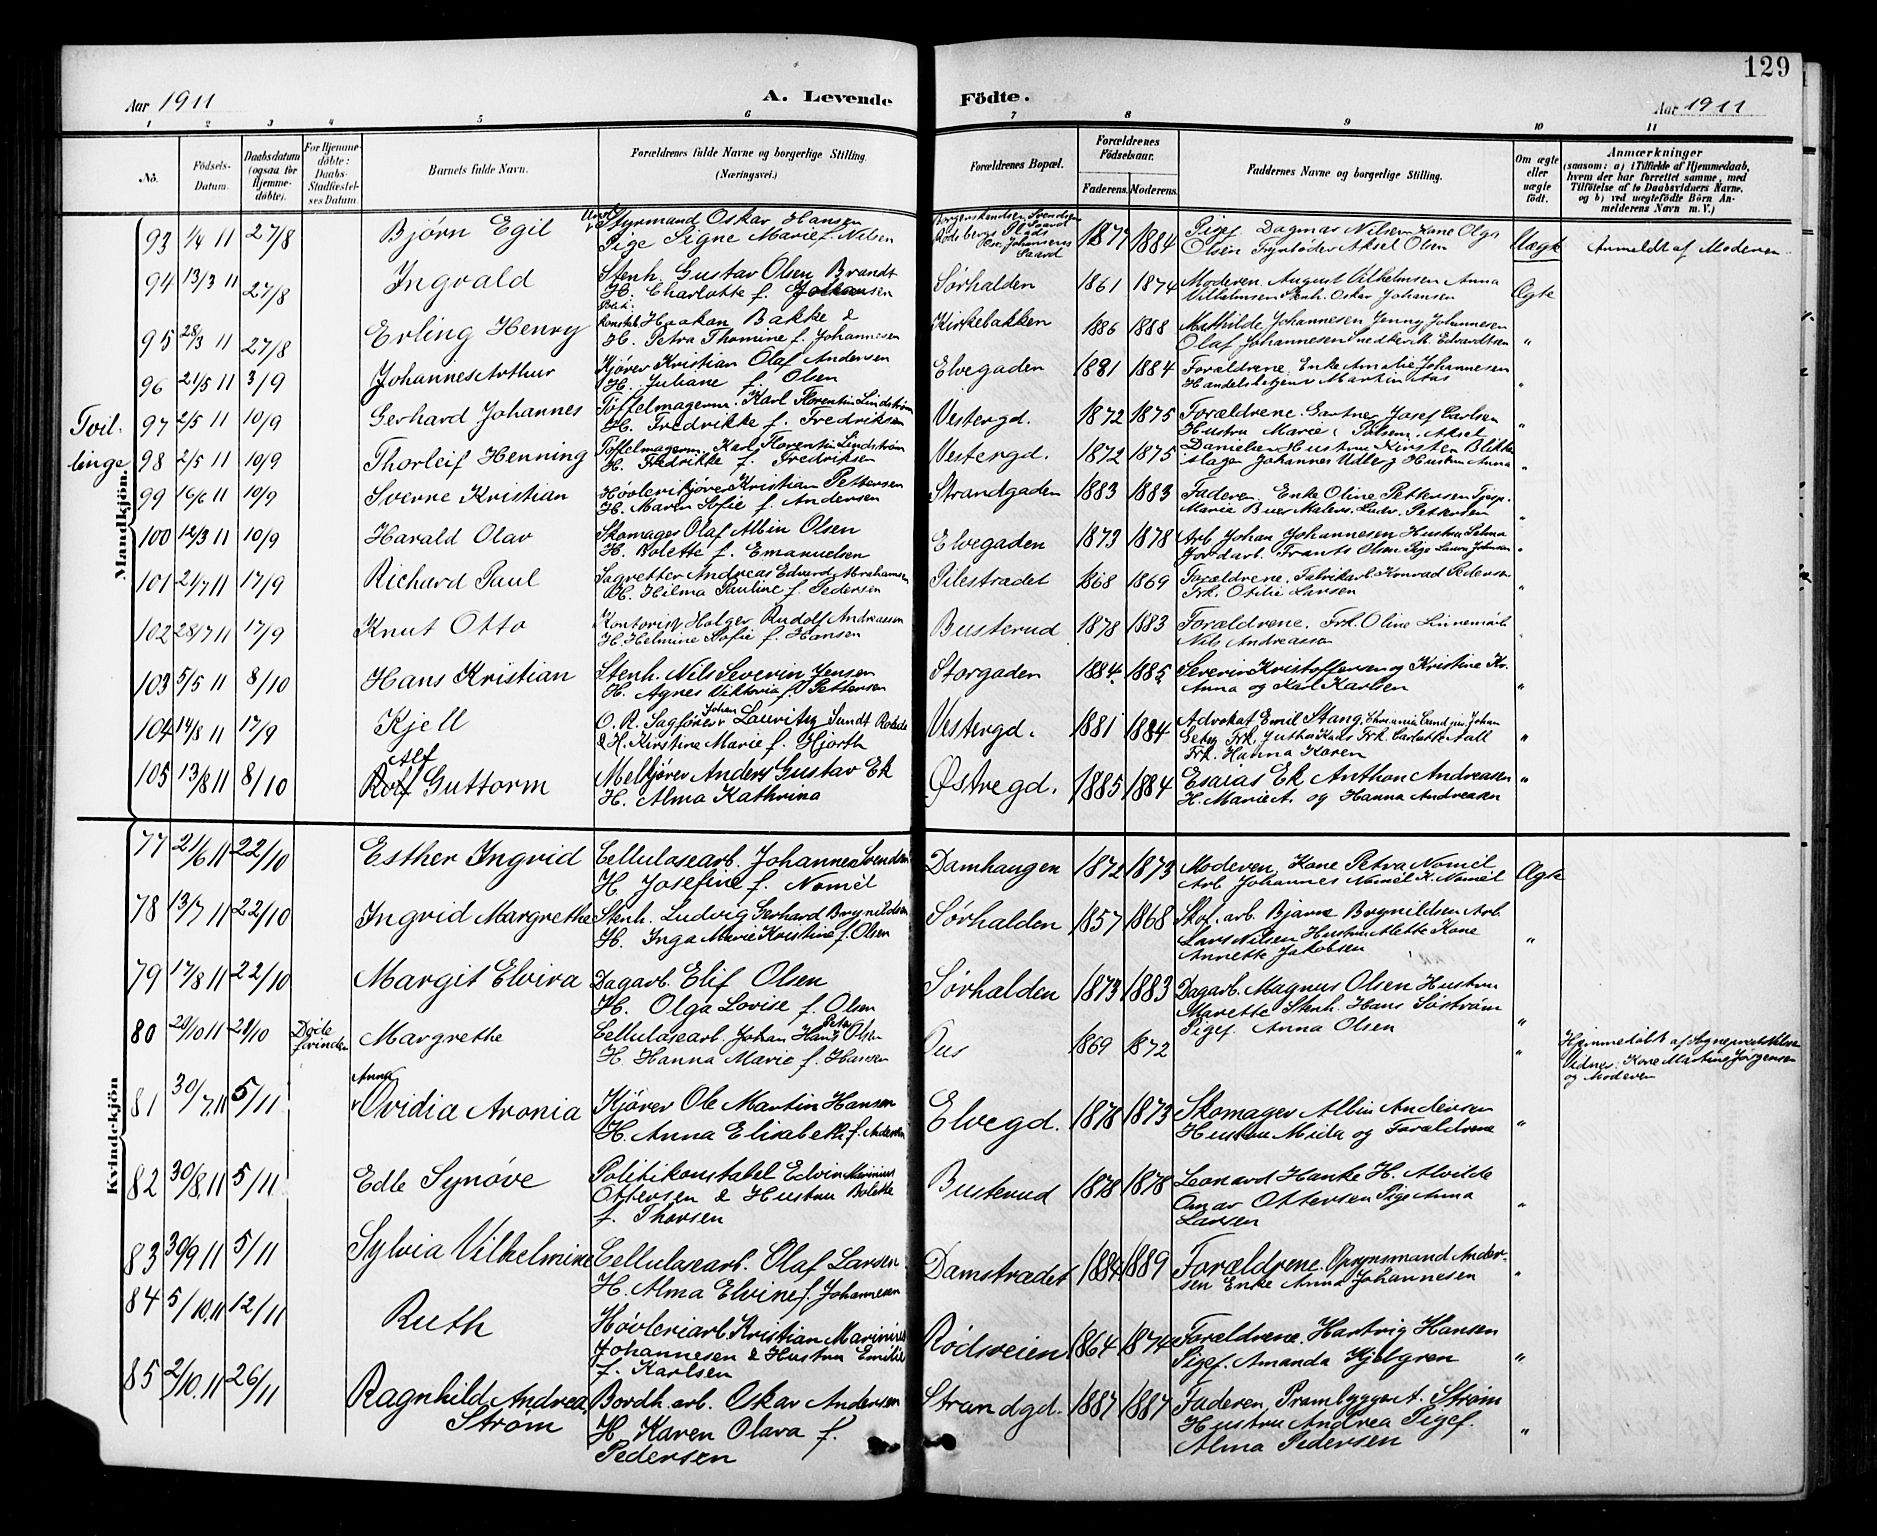 129
Aar 1911 A. Levende Födte. Aar 1911
1 2 3 4 5 6 7 8 9 10 11
No. Födsels-Datum. Daabsdatum (ogsaa for Hjemmedöbte). For Hjemmedöbte: Daabs-Stadfæstelses Datum. Barnets fulde Navn. Forældrenes fulde Navne og borgerlige Stilling. (Næringsvei.) Forældrenes Bopæl. Forældrenes Födselsaar. Faderens. Moderens. Faddernes Navne og borgerlige Stilling. Om ægte eller uægte födt. Anmærkninger (saasom: a) i Tilfælde af Hjemmedaab, hvem der har forrettet samme, med Tilföielse af to Daabsvidners Navne. og b) ved uægtefödte Börn Anmelderens Navn m. V.)
Mandkjön.
93 1/4 11 27/8 Bjørn Egil Styrmand Oskar Hansen 1877 1884 Pigef. Dagmar Nilsen Kone Olga Uægte Anmeldt af Moderen
Pige Signe Marie f. Nilsen Olsen Fyrbøder Aksel Olsen
94 13/3 11 27/8 Ingvald Stenh. Gustav Olsen Brandt Sørhalden 1861 1874 Moderen August Vilhelmsen Anna Ægte
H. Charlotte f. Johansen Vilhelmsen Stenh. Oskar Johansen
95 28/3 11 27/8 Erling Henry Konstab. Haakan Bakke & Kirkebakken 1886 1888 Mathilde Johannesen Jenny Johannesen "
H. Petra Thomine f. Johannesen Olaf Johannesen Snedkersv. Edvardsen
96 21/5 11 3/9 Johannes Arthur Kjører Kristian Olaf Andersen Elvegaden 1881 1884 Forældrene. Enke Amalie Johannesen "
H. Juliane f. Olsen Handelsbetjent Martin Aas
Tvillinge
97 2/5 11 10/9 Gerhard Johannes Tøffelmagerm. Karl Florentin Lindstrøm Vestergd. 1872 1875 Forældrene. Gartner Josef Carlsen "
H. Fredrikke f. Fredriksen Hustru Marie Aksel
98 2/5 11 10/9 Thorleif Henning Tøffelmagerm. Karl Florentin Lindstrøm Vestergd. 1872 1875 Danielsen Hustru Kirsten Blikken- "
H. Fredrikke f. Fredriksen slager Johannes Udberg Hustru Anna
99 16/6 11 10/9 Sverre Kristian Høvlerikjører Kristian Pettersen Strandgaden 1883 1883 Faderen, Enke Oline Pettersen Tjesp. "
H. Maren Sofie f. Andersen Marie Buer Malers. Ludv. Pettersen
100 12/3 11 10/9 Harald Olav Skomager Olaf Albin Olsen Elvegaden 1873 1878 Arb Johan Johannesen Hustru Selma "
H. Bolette f. Emanuelsen Jordarb. Frants Olsen Pige Laura Johnsen
101 21/7 11 17/9 Richard Paul Sagretter Andreas Edvard Abrahamsen Pilestrædet 1868 1869 Forældrene. Fabrikarb. Konrad Pedersen "
H. Hilma Pauline f. Pedersen Frk. Otilie Larsen
102 28/7 11 17/9 Knut Otto Kontorist Holger Rudolf Andreassen Busterud 1878 1883 Forældrene. Frk. Oline "
H. Helmine Sofie f. Hansen Nils Andreassen
103 5/5 11 8/10 Hans Kristian Stenh. Nils Severin Jensen Storgaden 1884 1885 Severin Kristoffersen og Kristine Kr. "
H. Agnes Viktoria f. Pettersen Anna og Karl Karlsen
104 14/8 11 17/9 Kjell O. R. Sagfører Johan Lauritz Sundt Vestergd. 1881 1884 Advokat Emil Stang, "
& H. Kirstine Marie f. Hjorth Frk. Frk. Carlotte
Frk. Hanna Karen
105 13/8 11 8/10 Rolf Alf Guttorm Melkjører Anders Gustav Ek Østre gd. 1885 1884 Esaias Ek Anthon Andreasen "
H. Alma Kathrina H. Marie A. og Hanna Andreasen
Kvindekjön
77 21/6 11 22/10 Esther Ingrid Cellulosearb. Johannes Svendsen Damhaugen 1872 1873 Moderen, Kone Petra Nomèl Ægte
H. Josefine f. Nomèl Arb Johannes Nomèl K. Nomèl
78 13/7 11 22/10 Ingrid Margrethe Stenh. Ludvig Gerhard Brynildsen Sørhalden 1857 1868 Skof. arb. Bjarne Brynildsen Arb. "
H. Inga Marie Kristine f. Olsen Lars Nilsen Hustru Alette Kone
Annette Jakobsen
79 17/8 11 22/10 Margit Elvira Dagarb. Elif Olsen Sørhalden 1873 1883 Dagarb. Magnus Olsen Hustru "
H. Olga Lovise f. Olsen Marette Stenh. Hans Søstrøm
Pigef. Anna Olsen
80 20/10 11 28/10 Døde forinden Margrethe Cellulosearb. Johan Hans Peter Olsen Ous 1869 1872 " Hjemmedøbt af
H. Hanna Marie f. Hansen Vidner: Kone Martine Jørgensen
og Moderen
81 30/7 11 5/11 Anna Ovidia Aronia Kjører Ole Martin Hansen Elvegd. 1878 1873 Skomager Albin Andersen "
H. Anna Elisabeth f. Andersen Hustru Mida og Forældrene
82 30/8 11 5/11 Edle Synøve Politikonstabel Edvin Marinius Busterud 1878 1878 Leonard Hanke H. Alvilde "
Ottersen & Hustru Bolette Omar Ottersen Pige Anna
f. Thorsen Larsen
83 30/9 11 5/11 Sylvia Vilhelmine Cellulosearb. Olaf Larsen Damstrædet 1884 1889 Forældrene. Opsynsmand Ander- "
H. Alma Elvine f. Johannesen sen Enke Anna Johannesen
84 5/10 11 12/11 Ruth Høvleriarb Kristian Marinius Rødsveien 1864 1874 Forældrene. Hartvig Hansen "
Johannesen & Hustru Emilie Pigef. Amanda Hjelgren
f. Karlsen
85 2/10 11 26/11 Ragnhild Andrea Bordh. arb. Oskar Andersen Strandgd. 1887 1887 Faderen, Prambygger A. Strøm "
Strøm H. Karen Olava f. Hustru Andrea Pigef.
Pedersen Alma Pedersen